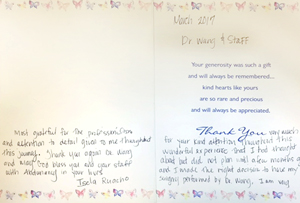 March 2017
Dr Wang & Staff
Your generosity was such a gift
and will always be remembered...
kind hearts like yours
are so rare and precious
and will always be appreciated.
Thank You very much
for your kind attention throughout this
wonderful experience that I had thought
about but did not plan until a few months ago
and I made the right decision to have my
surgery performed by Dr Wang. I am very
most grateful for the professionalism
and attention to detail given to me throughout
this journey. Thank you again Dr Wang
and may God bless you and your staff
with abundancy in your lives